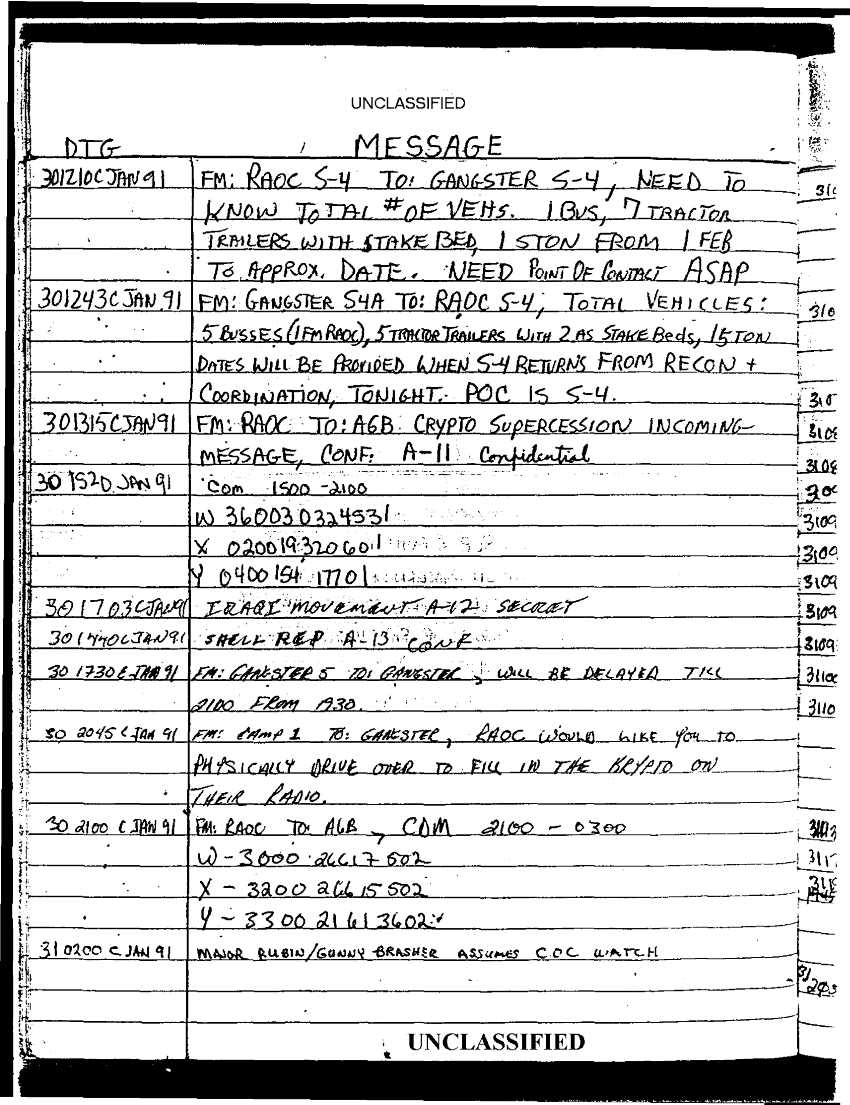 UNCLASSIFIED
DTG MESSAGE
301210C JAN 91 FM: RAOC S-4 TO: GANGSTER S-4, NEED TO
KNOW TOTAL # OF VEHS. 1 BUS, 7 TRACTOR
TRAILERS WITH STAKE BED, 1 5TON FROM 1 FEB
TO APPROX. DATE. NEED POINT OF CONTACT ASAP
301243C JAN 91 FM: GANGSTER S4A TO: RAOC S-4, TOTAL VEHICLES:
5 BUSSES (1 FM RAOC), 5 TRACTOR TRAILERS WITH 2 AS STAKE Beds, 1 5 TON
DATES WILL BE PROVIDED WHEN S-4 RETURNS FROM RECON +
COORDINATION, TONIGHT. POC IS S-4.
301315C JAN 91 FM: RAOC TO: AGB CRYPTO SUPERCESSION INCOMING
MESSAGE, CONF: A-11 Confidential
30 1520 JAN 91 Com 1500-2100
W 36003032453
X 02001932060
Y 0400154 17701
301703C JAN 91 IRAQI MOVEMENT A-12 SECRET
301440C JAN 91 SHELL REP A-13 CONF
30 1730 C JAN 91 FM: GANGSTER 5 TO: GANGSTER, WILL BE DELAYED TILL
2100 FROM 1930.
30 2045 C JAN 91 FM: CAMP 1 TO: GANGSTER, RAOC WOULD LIKE YOU TO
PHYSICALLY DRIVE OVER TO FILL IN THE KRYPTO ON
THEIR RADIO.
30 2100 C JAN 91 FM: RAOC TO: AGB, COM 2100 - 0300
W - 3000 26617 502
X - 3200 266 15 502
Y - 3300 21613602
31 0200 C JAN 91 MAJOR RUBIN/GUNNY BRASHER ASSUMES COC WATCH
UNCLASSIFIED